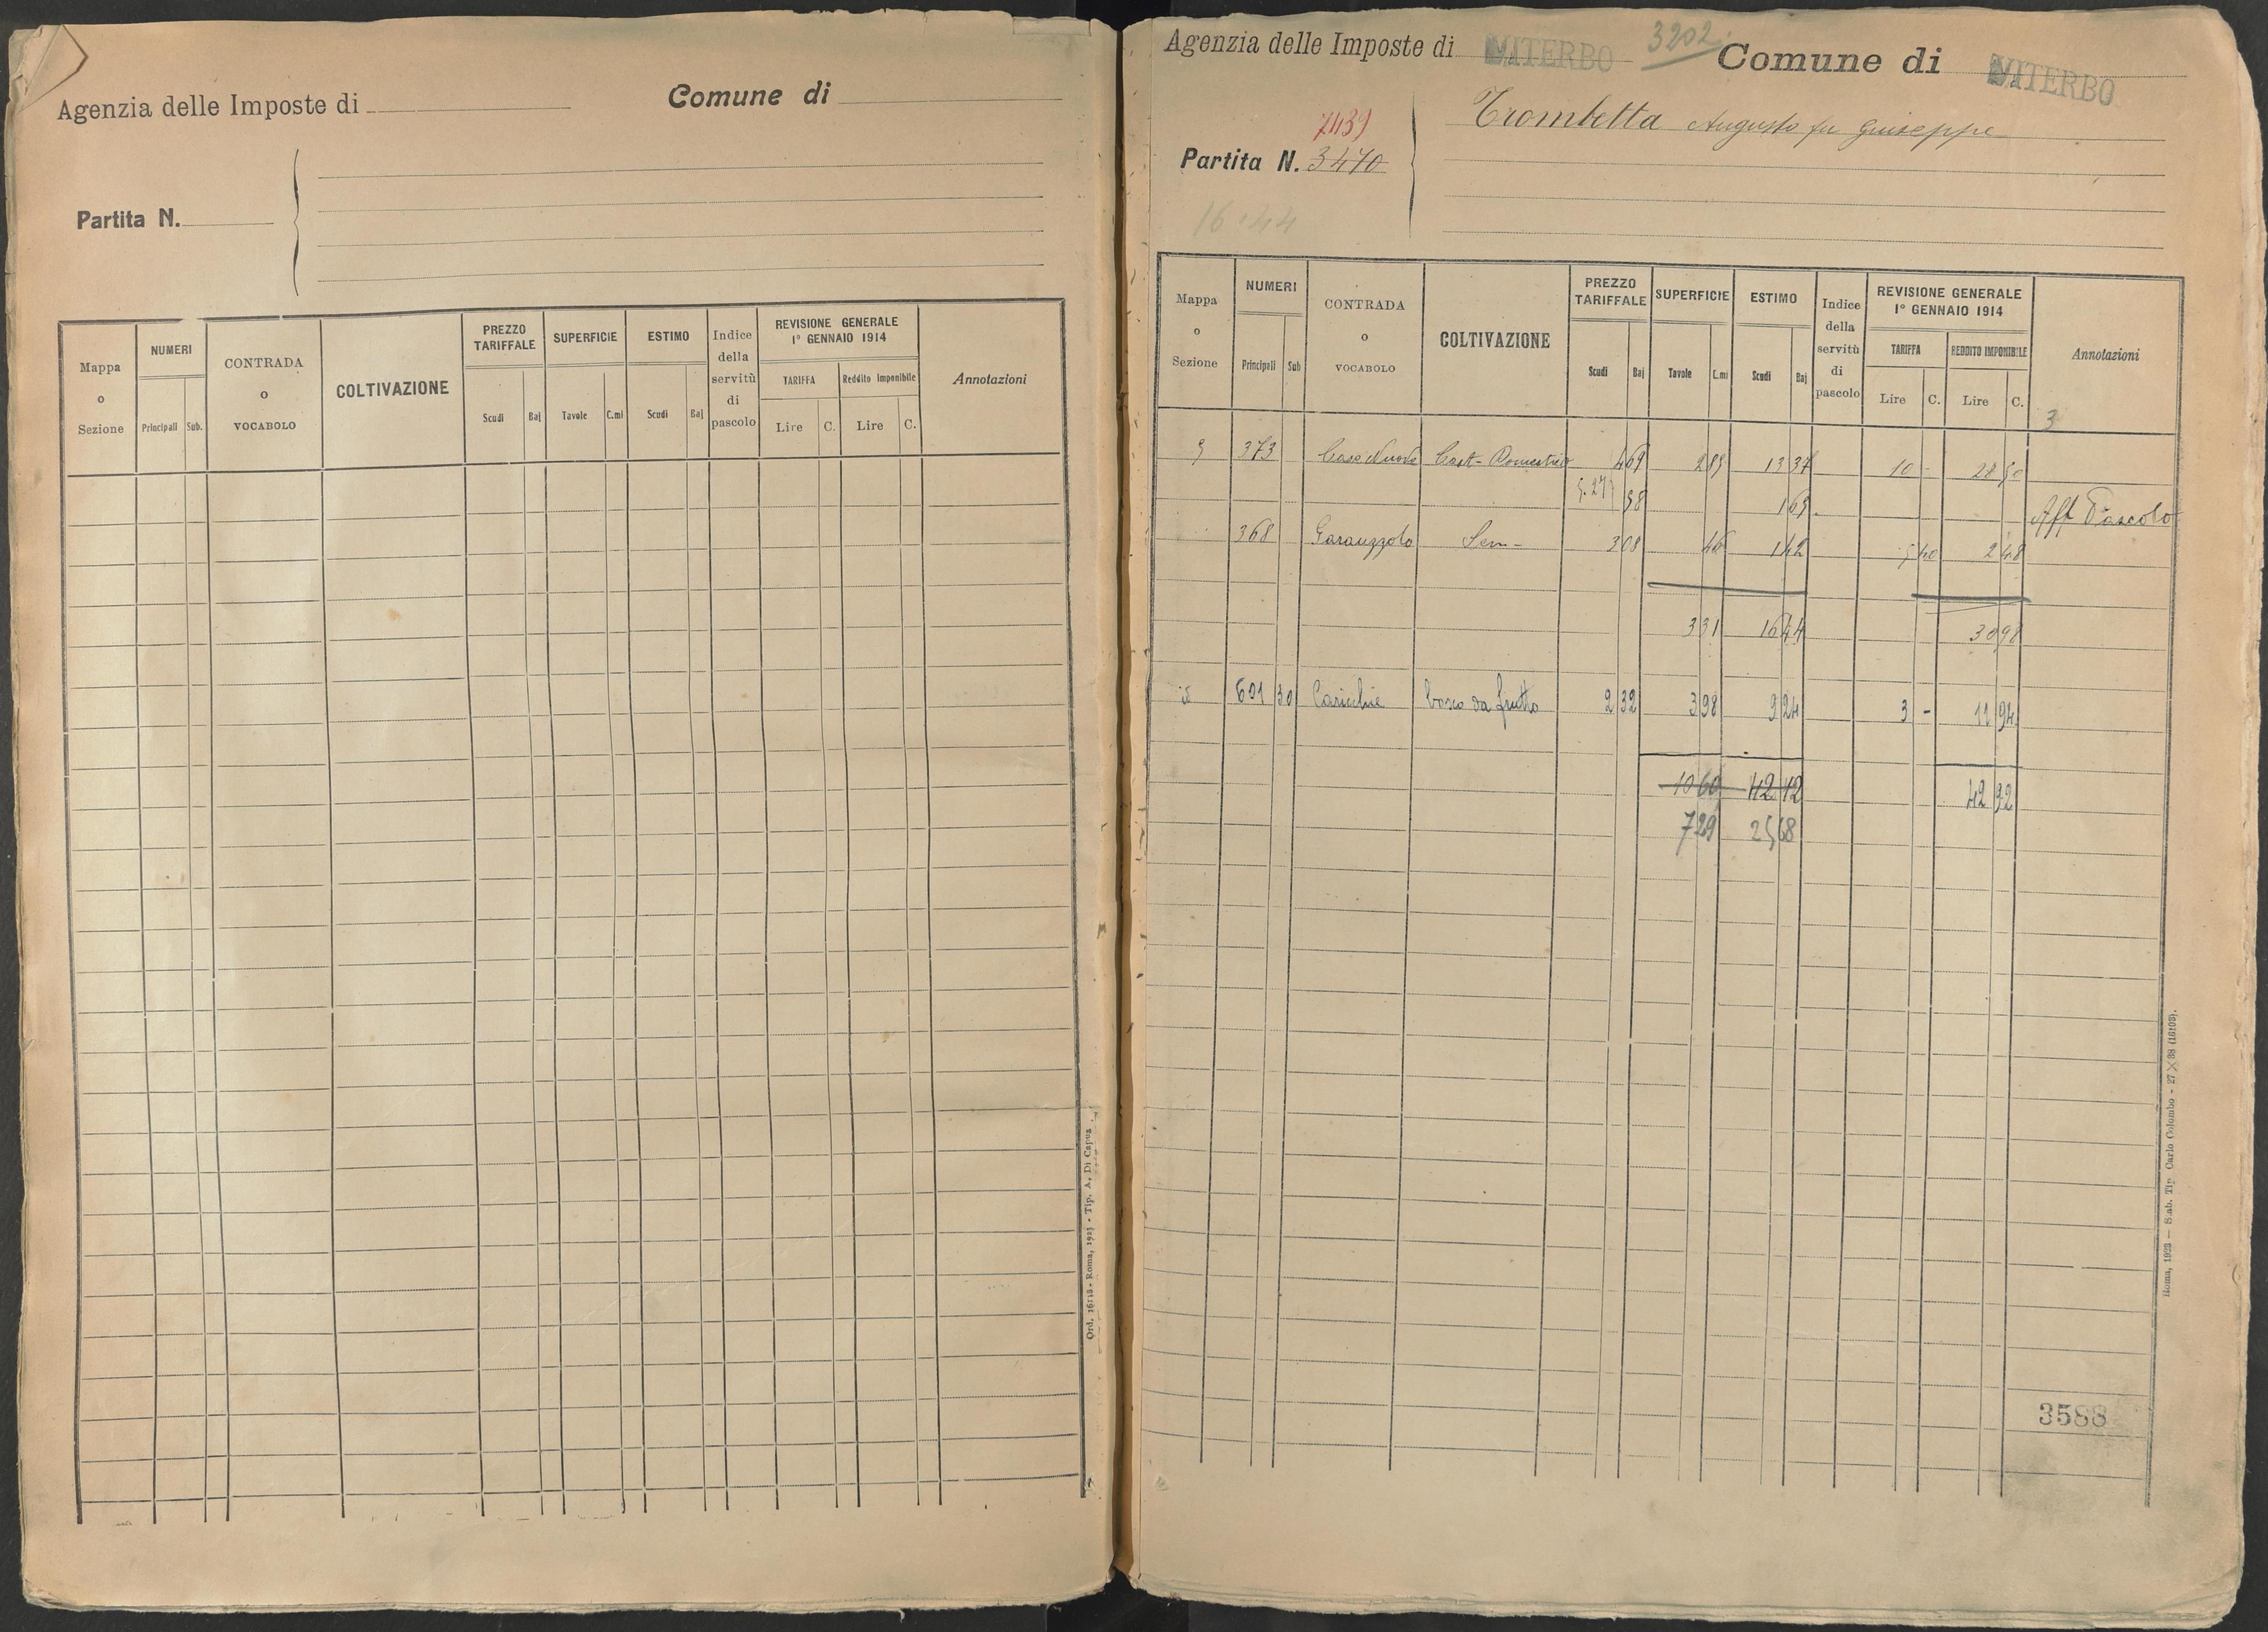 Agenzia delle Imposte di
Comune di
Partita N.
Mappa o Sezione
NUMERI
Principali Sub.
CONTRADA o VOCABOLO
COLTIVAZIONE
PREZZO TARIFFALE
Scudi Baj
SUPERFICIE
Tavole C.mi
ESTIMO
Scudi Baj
Indice della servitù di pascolo
REVISIONE GENERALE 1° GENNAIO 1914
TARIFFA
Lire C.
Reddito Imponibile
Lire C.
Annotazioni
Ord. 16118 - Roma, 1925 - Tip. A. Di Capua
Agenzia delle Imposte di VITERBO 3202. Comune di VITERBO
7439
Partita N. 3470
Trombetta Augusto fu Giuseppe
16.44
Mappa o Sezione
NUMERI
Principali Sub
CONTRADA o VOCABOLO
COLTIVAZIONE
PREZZO TARIFFALE
Scudi Baj
SUPERFICIE
Tavole C.mi
ESTIMO
Scudi Baj
Indice della servitù di pascolo
REVISIONE GENERALE 1° GENNAIO 1914
TARIFFA
Lire C.
REDDITO IMPONIBILE
Lire C.
Annotazioni
3
373 Case Nuove Cast- Domestico 4 69 2 85 13 37 10 - 28 50
58 1 65 Aff Pascolo
368 Sem- 3 08 46 1 42 5 40 2 48
3 31 16 44 30 98
601 30 bosco da frutto 2 32 3 98 9 24 3 - 11 94
10 60 42 12 42 92
7 29 25 68
3588
Roma, 1923 — Stab. Tip. Carlo Colombo - 27 X 38 (16103).